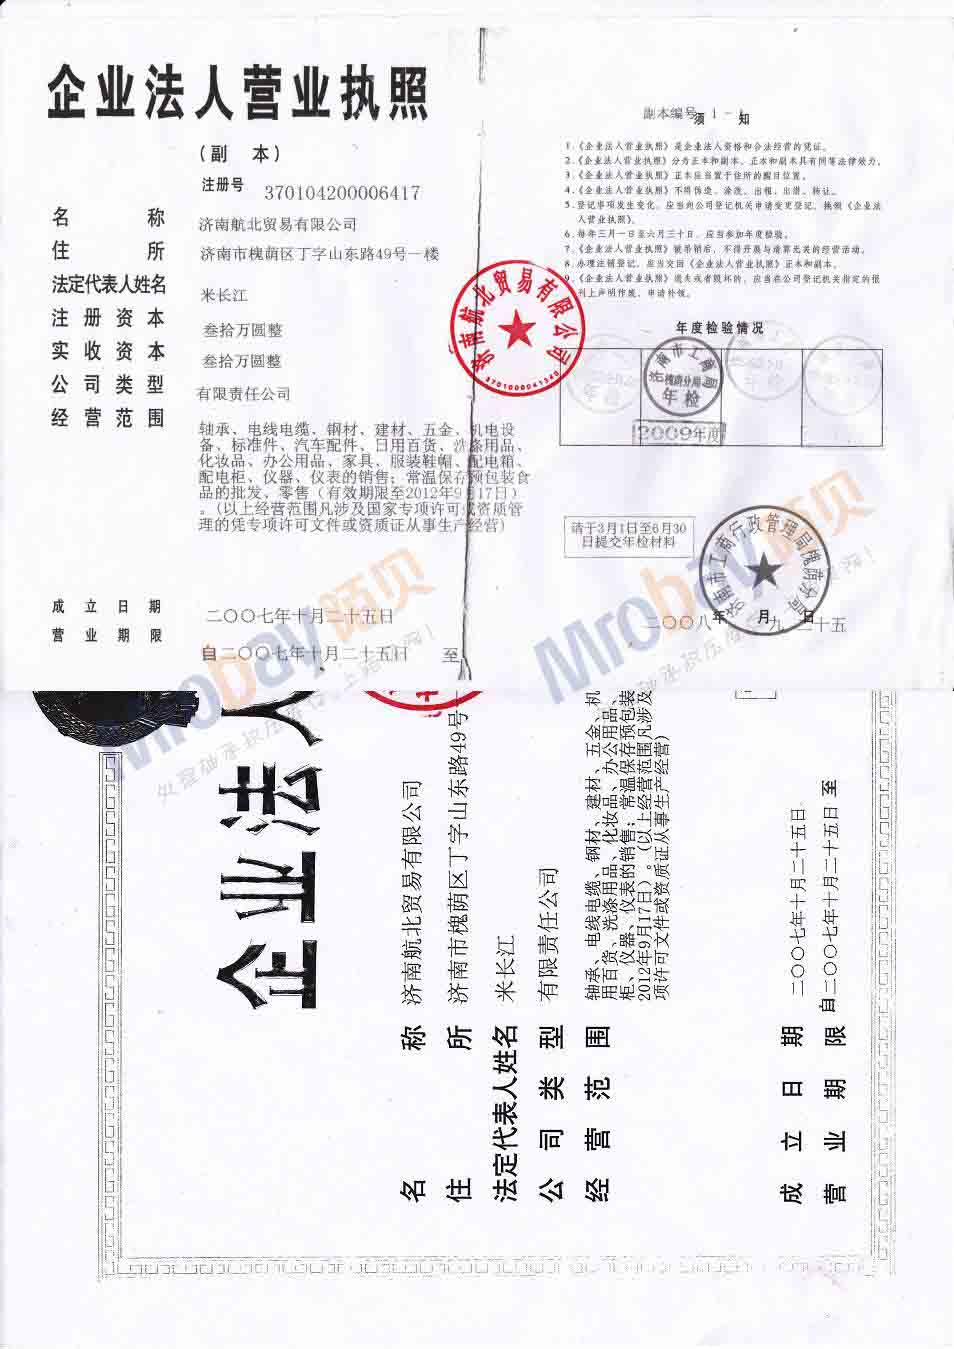 企业法人营业执照
(副 本)
注册号 370104200006417
名 称 济南航北贸易有限公司
住 所 济南市槐荫区丁字山东路49号一楼
法定代表人姓名 米长江
注 册 资 本 叁拾万圆整
实 收 资 本 叁拾万圆整
公 司 类 型 有限责任公司
经 营 范 围 轴承、电线电缆、钢材、建材、五金、机电设
备、标准件、汽车配件、日用百货、洗涤用品、
化妆品、办公用品、家具、服装鞋帽、配电箱、
配电柜、仪器、仪表的销售；常温保存预包装食
品的批发、零售（有效期限至2012年9月17日）
。(以上经营范围凡涉及国家专项许可或资质管
理的凭专项许可文件或资质证从事生产经营)
成 立 日 期 二〇〇七年十月二十五日
营 业 期 限 自二〇〇七年十月二十五日 至
济南航北贸易有限公司
3701000041340
副本编号 1 - 1
须 知
1.《企业法人营业执照》是企业法人资格和合法经营的凭证。
2.《企业法人营业执照》分为正本和副本，正本和副本具有同等法律效力。
3.《企业法人营业执照》正本应当置于住所的醒目位置。
4.《企业法人营业执照》不得伪造、涂改、出租、出借、转让。
5.登记事项发生变化，应当向公司登记机关申请变更登记，换领《企业法
人营业执照》。
6.每年三月一日至六月三十日，应当参加年度检验。
7.《企业法人营业执照》被吊销后，不得开展与清算无关的经营活动。
8.办理注销登记，应当交回《企业法人营业执照》正本和副本。
9.《企业法人营业执照》遗失或者毁坏的，应当在公司登记机关指定的报
刊上声明作废，申请补领。
年度检验情况
济南市工商局
槐荫分局
年检
2009年度
请于3月1日至6月30
日提交年检材料
济南市工商行政管理局槐荫分局
二〇〇八年 月九 日二十五
Mrobay颂贝
Mrobay颂贝
企业法人
名 称 济南航北贸易有限公司
住 所 济南市槐荫区丁字山东路49号一
法定代表人姓名 米长江
公 司 类 型 有限责任公司
经 营 范 围 轴承、电线电缆、钢材、建材、五金、机
用百货、洗涤用品、化妆品、办公用品、
柜、仪器、仪表的销售；常温保存预包装
2012年9月17日）。（以上经营范围凡涉及
项许可文件或资质证从事生产经营）
成 立 日 期 二〇〇七年十月二十五日
营 业 期 限 自二〇〇七年十月二十五日 至